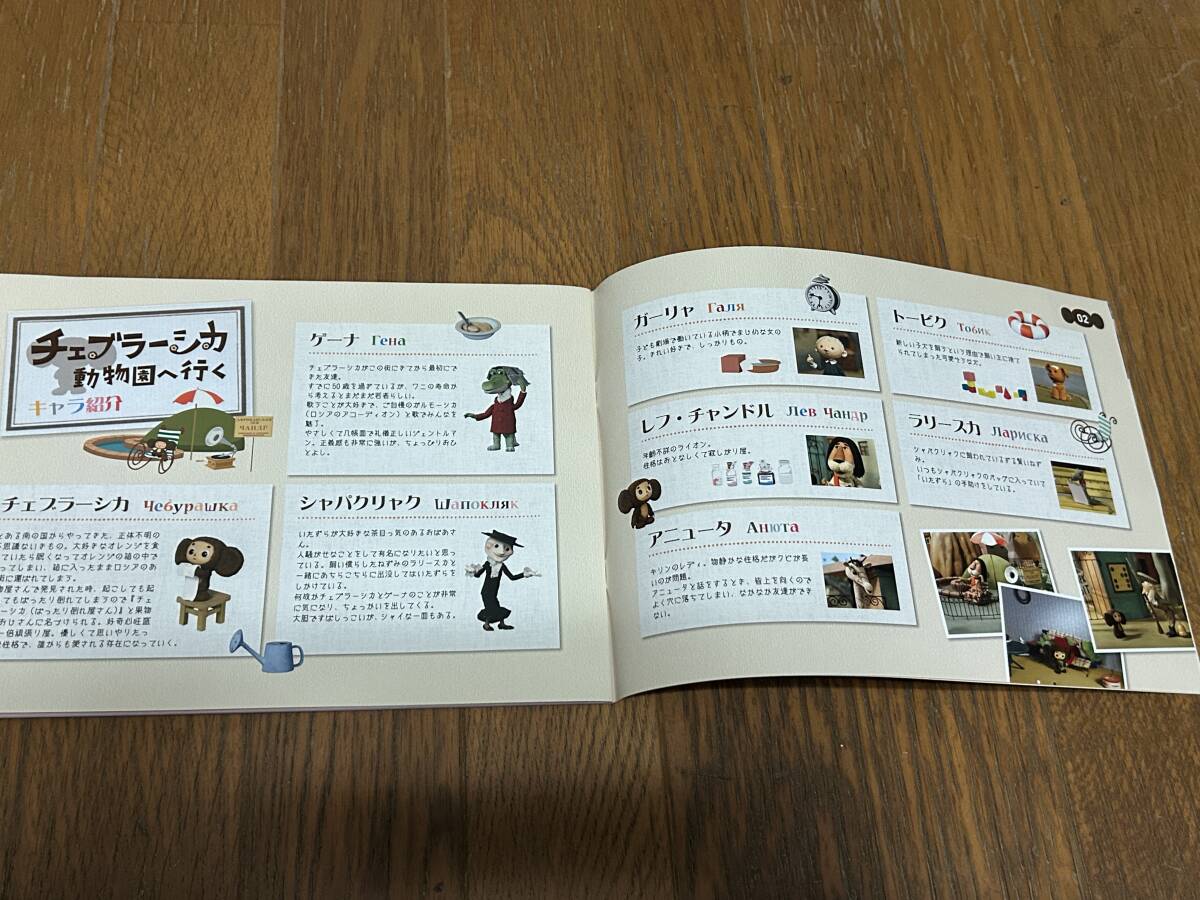 チェブラーシカ
動物園へ行く
キャラ紹介
ЧАНДР
チェブラーシカ Чебурашка
とある南の国からやってきた、正体不明の
不思議ないきもの。大好きなオレンジを食
ていたら眠くなってオレンジの箱の中で
ってしまい、箱に入ったままロシアのあ
街に運ばれてしまう。
物屋さんで発見された時、起こしても起
てもばったり倒れてしまうので『チェ
ーシカ(ばったり倒れ屋さん)』と果物
おじさんに名づけられる。好奇心旺盛
一倍頑張り屋。優しくて思いやりたっ
性格で、誰からも愛される存在になっていく。
ゲーナ Гена
チェブラーシカがこの街にきてから最初にで
きた友達。
すでに50歳を過ぎているが、ワニの寿命か
ら考えるとまだまだ若者らしい。
歌うことが大好きで、ご自慢のガルモーシカ
(ロシアのアコーディオン)と歌でみんなを
魅了。
やさしくて几帳面で礼儀正しいジェントルマ
ン。正義感も非常に強いが、ちょっぴりおひ
とよし。
シャパクリャク Шапокляк
いたずらが大好きな茶目っ気のあるおばあさ
ん。
人騒がせなことをして有名になりたいと思っ
ている。飼い慣らしたねずみのラリースカと
一緒にあちらこちらに出没してはいたずらを
しかけている。
何故かチェブラーシカとゲーナのことが非常
に気になり、ちょっかいを出してくる。
大胆ですばしっこいが、シャイな一面もある。
ガーリャ Галя
子ども劇場で働いている小柄でまじめな女の
子。きれい好きで、しっかりもの。
レフ・チャンドル Лев Чандр
年齢不詳のライオン。
性格はおとなしくて寂しがり屋。
アニュータ Анюта
キリンのレディ。物静かな性格だがクビが長
いのが問題。
アニュータと話をするとき、皆上を向くので
よく穴に落ちてしまい、なかなか友達ができ
ない。
02
トービク Тобик
新しい子犬を飼うという理由で飼い主に捨て
られてしまった可愛そうな犬。
ラリースカ Лариска
シャパクリャクに飼われているずる賢いねず
み。
いつもシャパクリャクのバッグに入っていて
「いたずら」の手助けをしている。